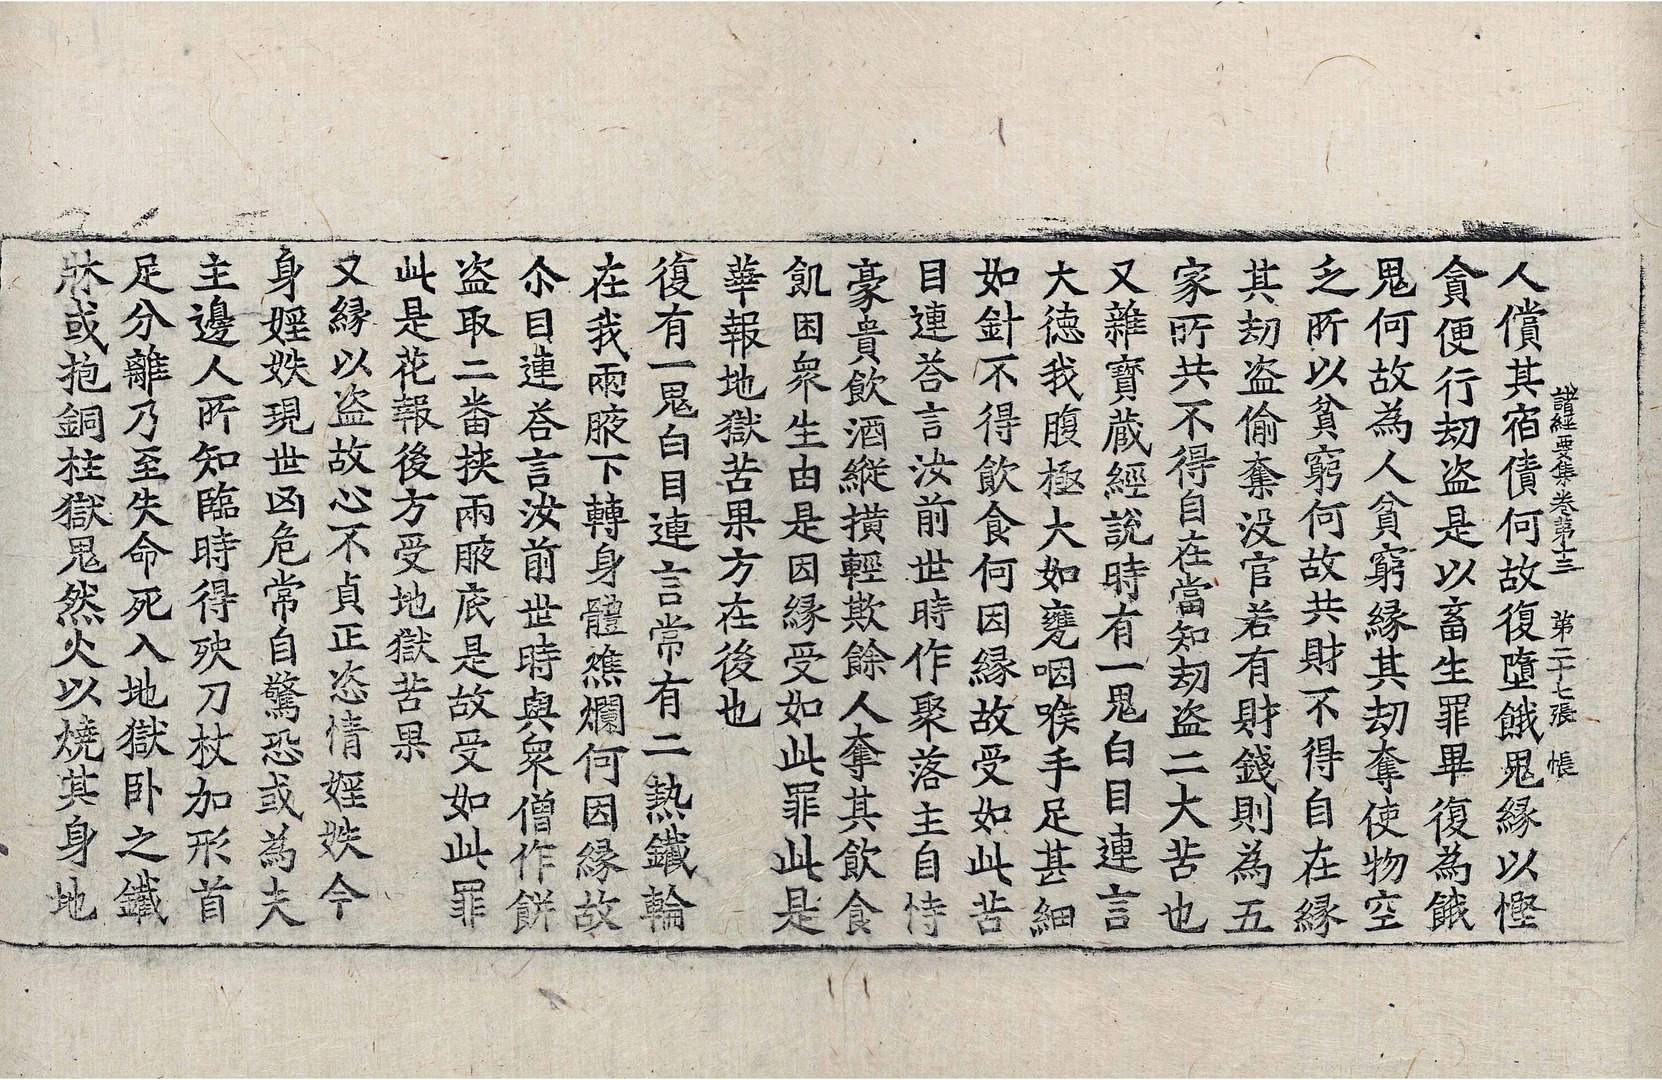 諸經要集卷第十三 第二十七張 帳
人償其宿債何故復墮餓鬼緣以慳
貪便行劫盜是以畜生罪畢復為餓
鬼何故為人貧窮緣其劫奪使物空
乏所以貧窮何故共財不得自在緣
其劫盜偷奪没官若有財錢則為五
家所共不得自在當知劫盜二大苦也
又雜寶藏經說時有一鬼白目連言
大德我腹極大如甕咽喉手足甚細
如針不得飲食何因緣故受如此苦
目連荅言汝前世時作聚落主自恃
豪貴飲酒縱橫輕欺餘人奪其飲食
飢困衆生由是因緣受如此罪此是
華報地獄苦果方在後也
復有一鬼白目連言常有二熱鐵輪
在我兩腋下轉身體燋爛何因緣故
尒目連荅言汝前世時與衆僧作餅
盜取二番挾兩腋底是故受如此罪
此是花報後方受地獄苦果
又緣以盜故心不貞正恣情婬妷今
身婬妷現世凶危常自驚恐或為夫
主邊人所知臨時得殃刀杖加形首
足分離乃至失命死入地獄卧之鐵
牀或抱銅柱獄鬼然火以燒其身地